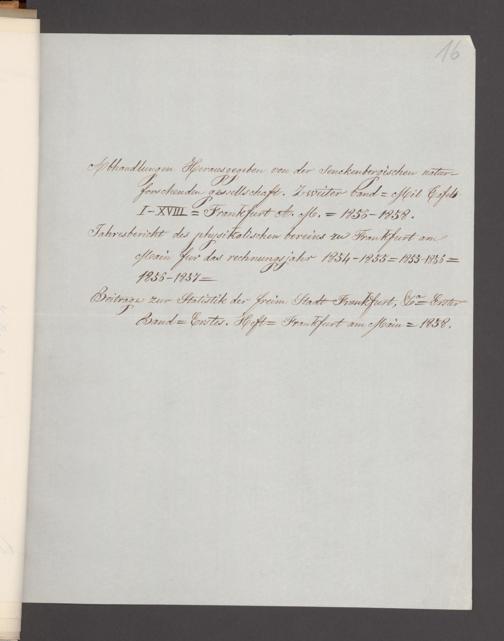 16
Abhandlungen Herausgegeben von der Senckenbergischen natur-
forschenden gesellschaft. Zweiter band = Mit Tafeln
I-XVIII = Frankfurt A. M. = 1856-1858.
Jahresbericht des physikalischen vereins zu Frankfurt am
Main für das rechnungsjahr 1854-1855 = 1855-1856 =
1856-1857 =
Beitrage zur Statistik der freim Stadt Frankfurt, = Erster
Band = Erstes. Heft = Frankfurt am Main = 1858.